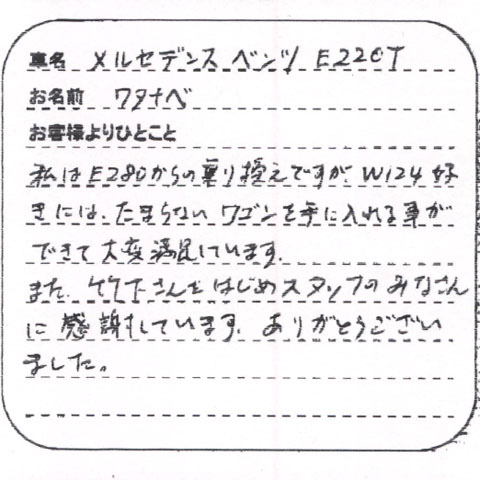 車名 メルセデンス ベンツ E220T
お名前 ワタナベ
お客様よりひとこと
私はE280からの乗り換えですが、W124好
きには、たまらない ワゴンを手に入れる事が
できて 大変満足しています。
また、竹下さんをはじめスタッフのみなさん
に感謝しています。ありがとうござい
ました。